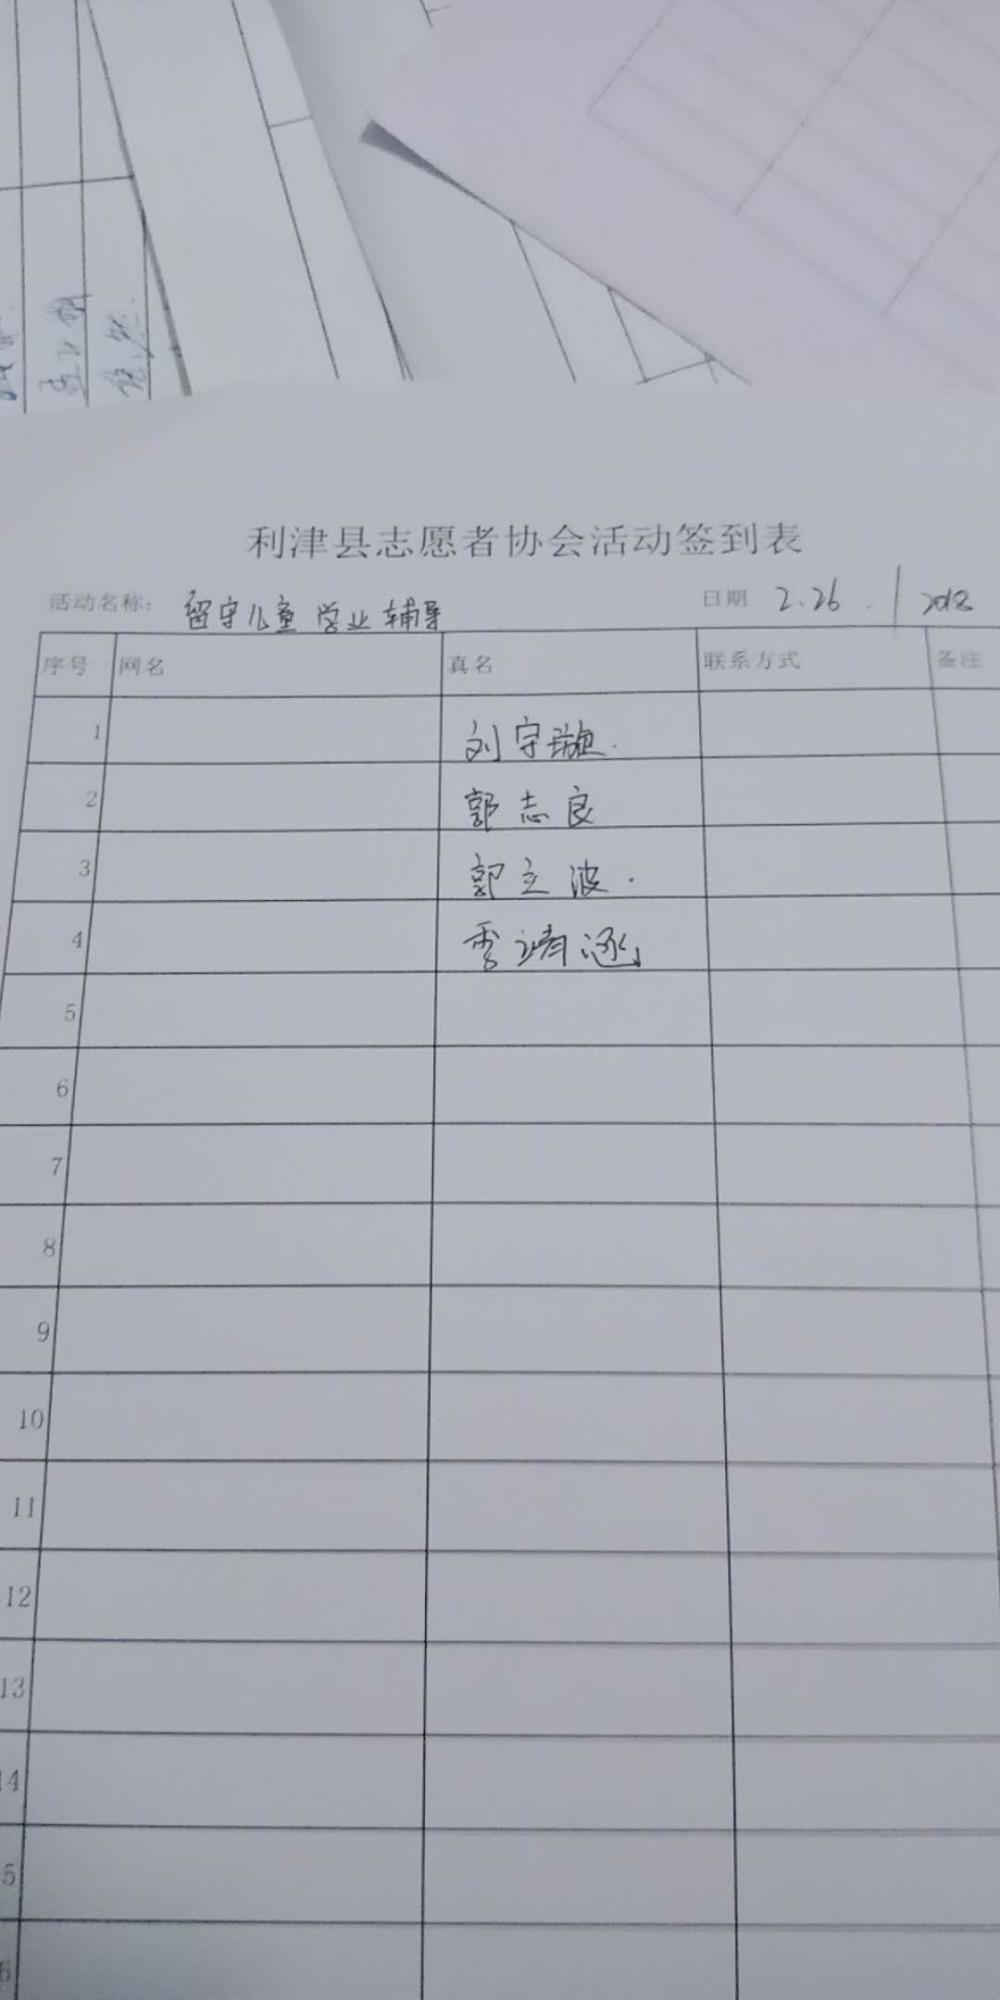 利津县志愿者协会活动签到表
活动名称: 留守儿童学业辅导 日期 2.26. / 2018
序号 网名 真名 联系方式 备注
1 刘宇璇.
2 郭志良
3 郭立波.
4 李靖涵
5
6
7
8
9
10
11
12
13
14